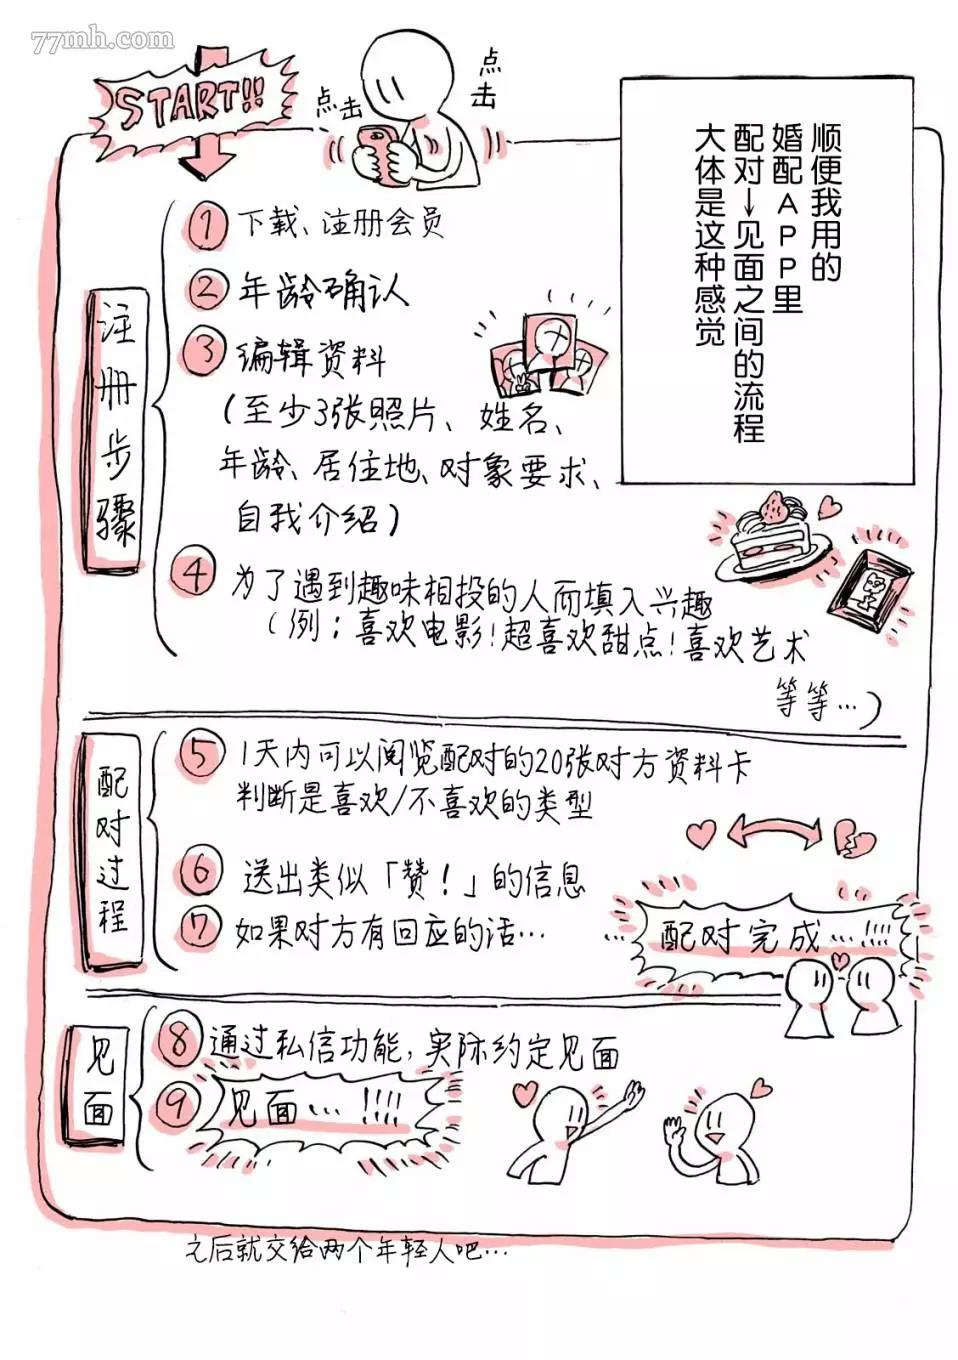 77mh.com
START!!
点击
点击
顺便我用的
婚配APP里
配对→见面之间的流程
大体是这种感觉
注册步骤
①下载、注册会员
②年龄确认
③编辑资料
(至少3张照片、姓名、
年龄、居住地、对象要求、
自我介绍)
④为了遇到趣味相投的人而填入兴趣
(例:喜欢电影!超喜欢甜点!喜欢艺术
等等…)
配对过程
⑤1天内可以阅览配对的20张对方资料卡
判断是喜欢/不喜欢的类型
⑥送出类似「赞!」的信息
⑦如果对方有回应的话…
…配对完成…!!!!
见面
⑧通过私信功能,实际约定见面
⑨见面…!!!!
之后就交给两个年轻人吧…